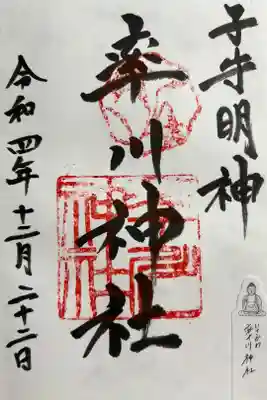 子守明神
率川神社
令和四年十二月二十二日
率川神社